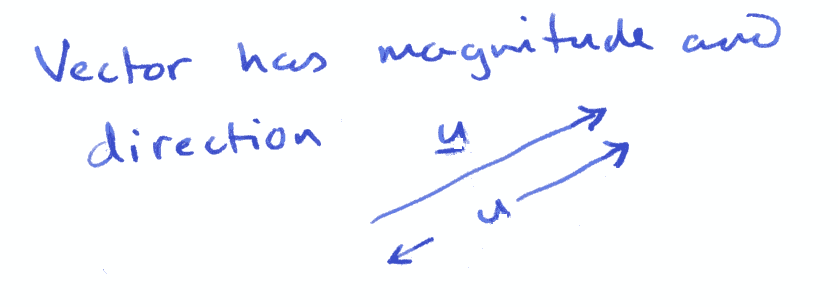 Vector has magnitude and
direction u
u